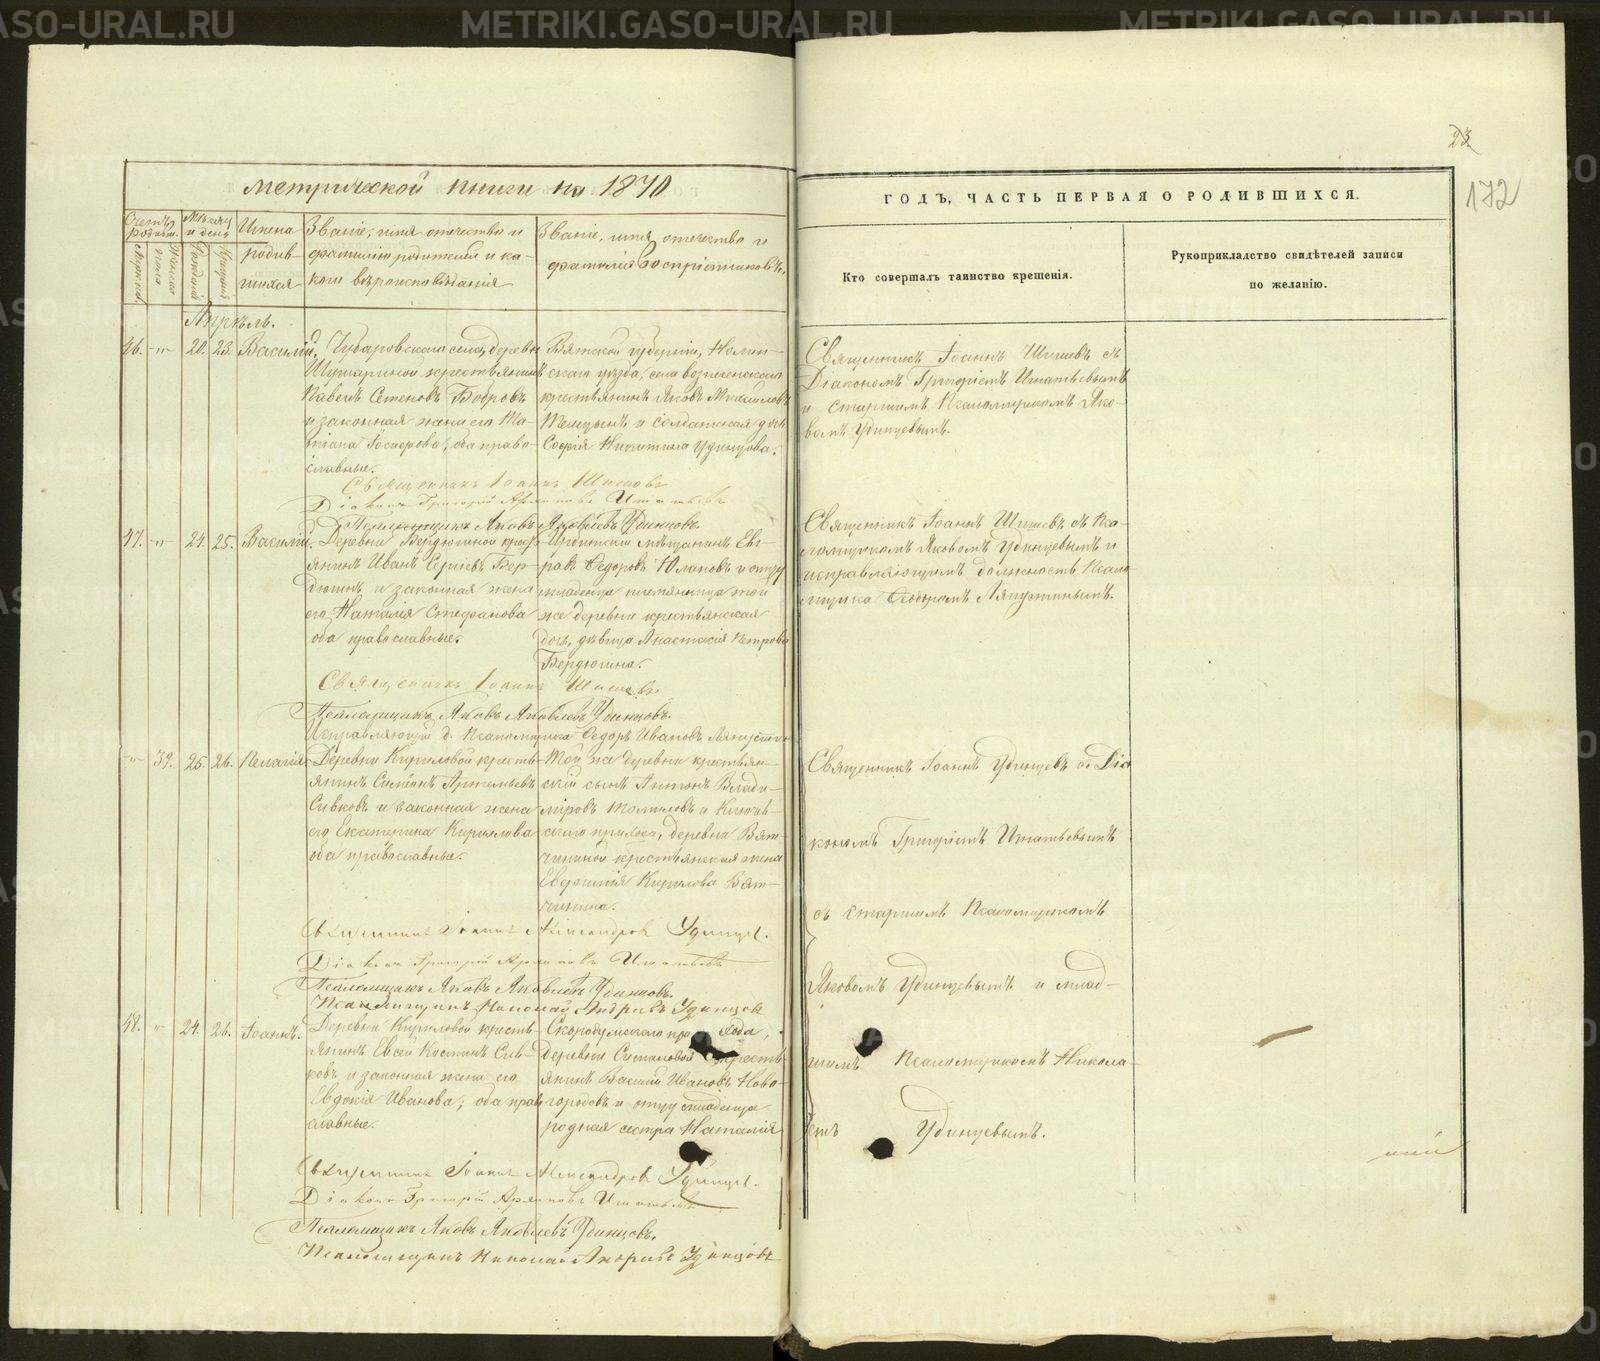 METRIKI.GASO-URAL.RU
23
172
Метрической книги на 1870
ГОДЪ, ЧАСТЬ ПЕРВАЯ О РОДИВШИХСЯ.
Счетъ родивш.
Мѣсяц и день
Имена родив-шихся
Званіе, имя отечество и фамилію родителей и ка-кого вѣроисповѣданія
Званіе, имя, отечество и фамилія воспріемниковъ.
Кто совершалъ таинство крещенія.
Рукоприкладство свидѣтелей записи
по желанію.
Апрѣль.
46. -"- 20. 23. Василій.
Чубаровскаго села, деревни
Павелъ Семеновъ Бобровъ
и законная жена его Та-
тіана Госифрова, оба право-
славные.
Вятской губерніи, Нолин-
скаго уѣзда, села вознесенскаго
крестьянинъ Яковъ Михайловъ
и солдатская дочь
Софія Никитина Удинцова.
Священникъ Іоаннъ Шишевъ съ
Діакономъ Григоріемъ Игнатьевымъ
и старшимъ Псаломщикомъ Яко-
вомъ Удинцевымъ.
Священникъ Іоаннъ Шишовъ
Діаконъ Григорій Игнатьевъ
Псаломщикъ Яковъ Яковлевъ Удинцовъ.
47. -"- 24. 25. Василій.
Деревни Бердюгиной крест-
янинъ Иванъ Сергіевъ Бер-
дюгинъ и законная жена
его Наталія Стефанова
оба православные.
Ирбитскій мѣщанинъ Евг-
рафъ Ѳедоровъ Юлановъ и отцу
младенца племянница той
же деревни крестьянская
дочь, дѣвица Анастасія Петрова
Бердюгина.
Священникъ Іоаннъ Шишевъ съ Пса-
ломщикомъ Яковомъ Удинцевымъ и
исправляющимъ должность Псало-
мщика Ѳеодоромъ Ляпустинымъ.
Священникъ Іоаннъ Шишовъ
Псаломщикъ Яковъ Яковлевъ Удинцовъ.
Исправляющій д. Псаломщика Ѳедоръ Ивановъ Ляпустинъ
-"- 39. 25. 26. Пелагія
Деревни Кириловой кресть-
янинъ Симеонъ Артемьевъ
Сивковъ и законная жена
его Екатерина Кирилова
оба православные.
Той же деревни крестьян-
скій сынъ Антонъ Влади-
міровъ Томиловъ и Ключев-
скаго прихода, деревни Вят-
чининой крестьянская жена
Евфимія Кирилова Вят-
чинина.
Священникъ Іоаннъ Удинцевъ съ Діа
кономъ Григоріемъ Игнатьевымъ
съ старшимъ Псаломщикомъ
Яковомъ Удинцевымъ и млад-
шимъ Псаломщикомъ Никола-
емъ Удинцевымъ.
Священникъ Іоаннъ Александровъ Удинцевъ.
Діаконъ Григорій Игнатьевъ
Псаломщикъ Яковъ Яковлевъ Удинцовъ.
Псаломщикъ Николай Андреевъ Удинцовъ
48. -"- 24. 26. Іоаннъ.
Деревни Кириловой кресть-
янинъ Евсей Костинъ Сив-
ковъ и законная жена его
Евдокія Иванова, оба право
славные.
Скородумскаго прихода,
деревни Симановой крестьянинъ Василій Ивановъ Ново-
городовъ и отцу младенца
родная сестра Наталія
Священникъ Іоаннъ Александровъ Удинцевъ.
Діаконъ Григорій Игнатьевъ
Псаломщикъ Яковъ Яковлевъ Удинцовъ.
Псаломщикъ Николай Андреевъ Удинцовъ